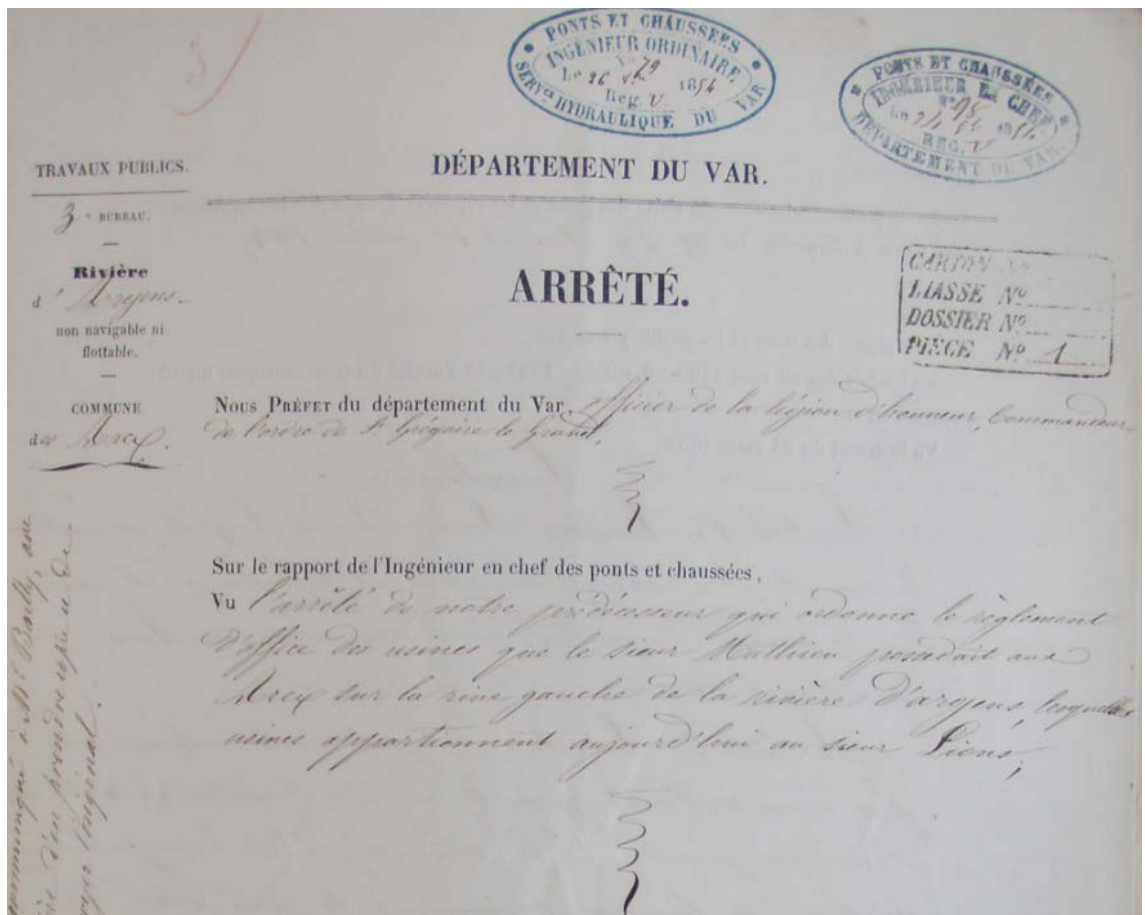 PONTS ET CHAUSSÉES
INGÉNIEUR ORDINAIRE
No 79
Le 26 1854
Reg. V.
SERVce HYDRAULIQUE DU VAR
PONTS ET CHAUSSÉES
INGÉNIEUR EN CHEF
No 98
REG. V
DÉPARTEMENT DU VAR.
TRAVAUX PUBLICS.
3e BUREAU.
Rivière
d'Argens.
non navigable ni
flottable.
COMMUNE
des Arcs.
DÉPARTEMENT DU VAR.
ARRÊTÉ.
CARTON No
LIASSE No
DOSSIER No
PIÈCE No 1
Nous Préfet du département du Var, officier de la légion d'honneur, Commandeur
de l'ordre de St Grégoire le Grand,
Sur le rapport de l'Ingénieur en chef des ponts et chaussées,
Vu l'arrêté de notre prédécesseur qui ordonne le règlement
d'office des usines que le sieur Mathieu possedait aux
Arcs sur la rive gauche de la rivière d'argens, lesquelles
usines appartiennent aujourd'hui au sieur Lions;
communiqué à Mr
d'en prendre copie et de
l'original.